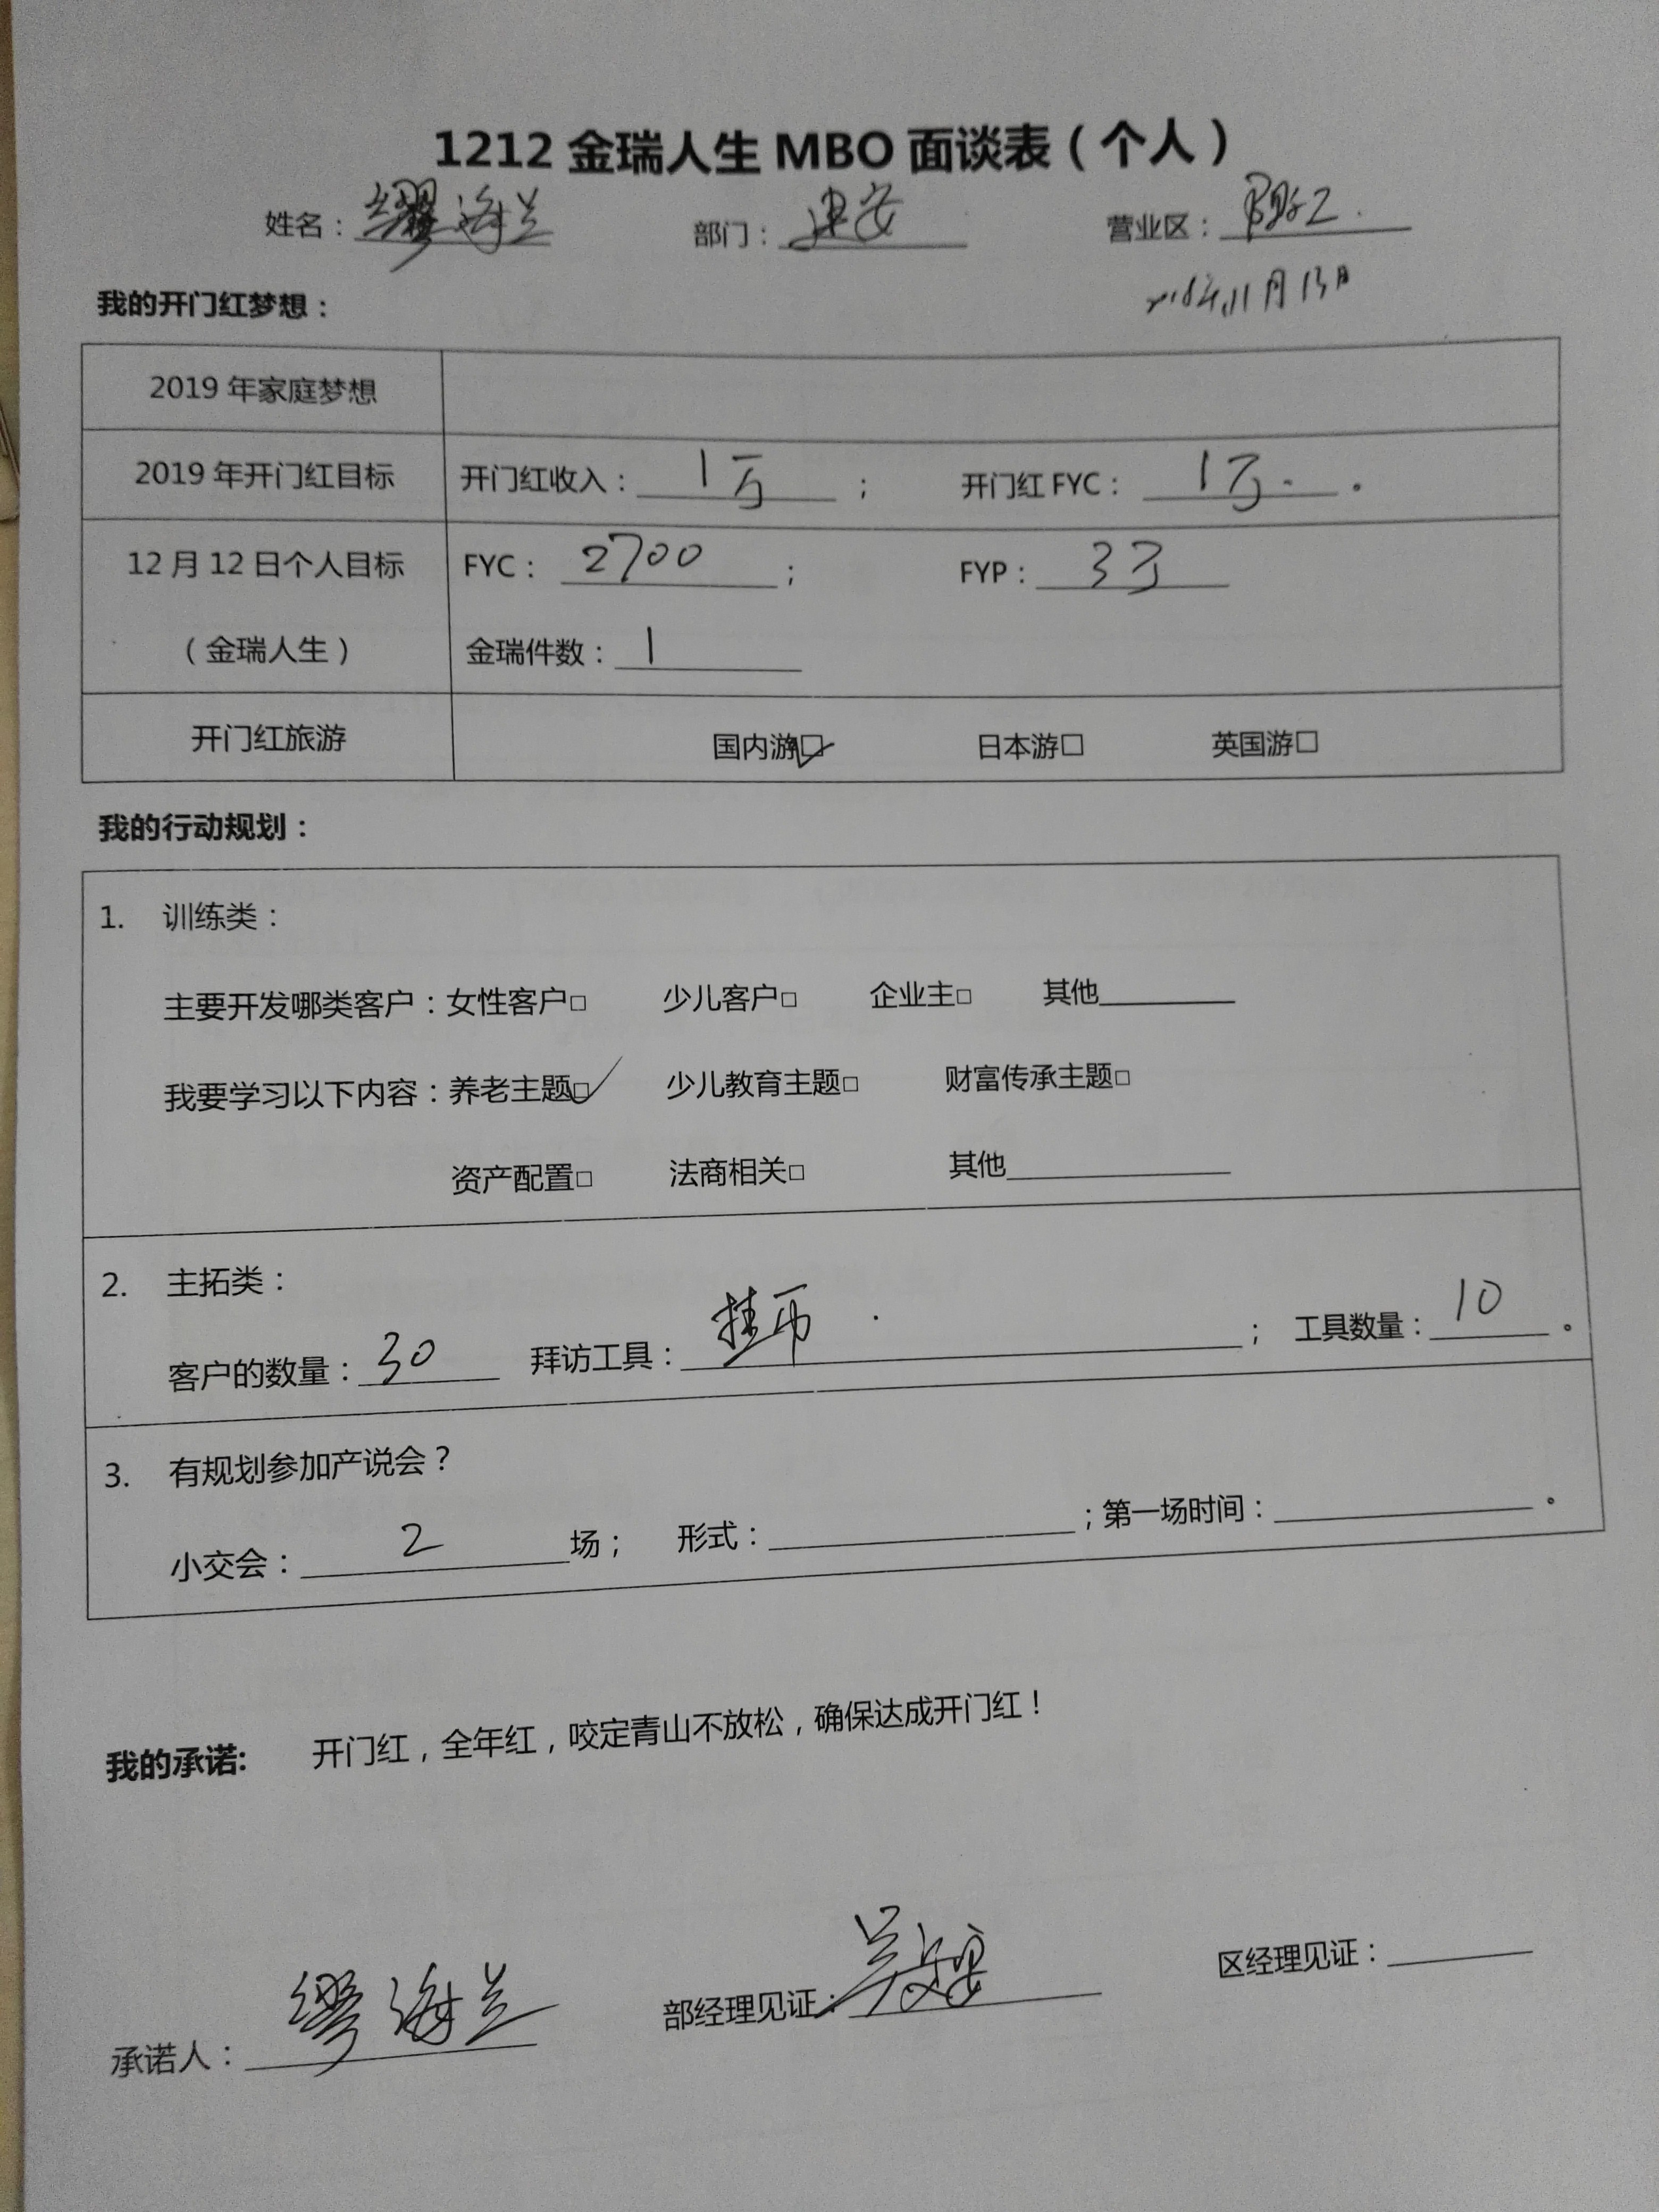 1212 金瑞人生 MBO 面谈表（个人）
姓名：缪海兰 部门：建安 营业区：
2018年11月13日
我的开门红梦想：
2019 年家庭梦想
2019 年开门红目标 开门红收入：1万； 开门红 FYC：1万。
12 月 12 日个人目标 FYC：2700； FYP：3万
（金瑞人生） 金瑞件数：1
开门红旅游 国内游☑ 日本游□ 英国游□
我的行动规划：
1. 训练类：
主要开发哪类客户：女性客户□ 少儿客户□ 企业主□ 其他
我要学习以下内容：养老主题☑ 少儿教育主题□ 财富传承主题□
资产配置□ 法商相关□ 其他
2. 主拓类：
客户的数量：30 拜访工具：挂历； 工具数量：10。
3. 有规划参加产说会？
小交会：2场； 形式：；第一场时间：。
我的承诺: 开门红，全年红，咬定青山不放松，确保达成开门红！
承诺人：缪海兰 部经理见证：吴 区经理见证：